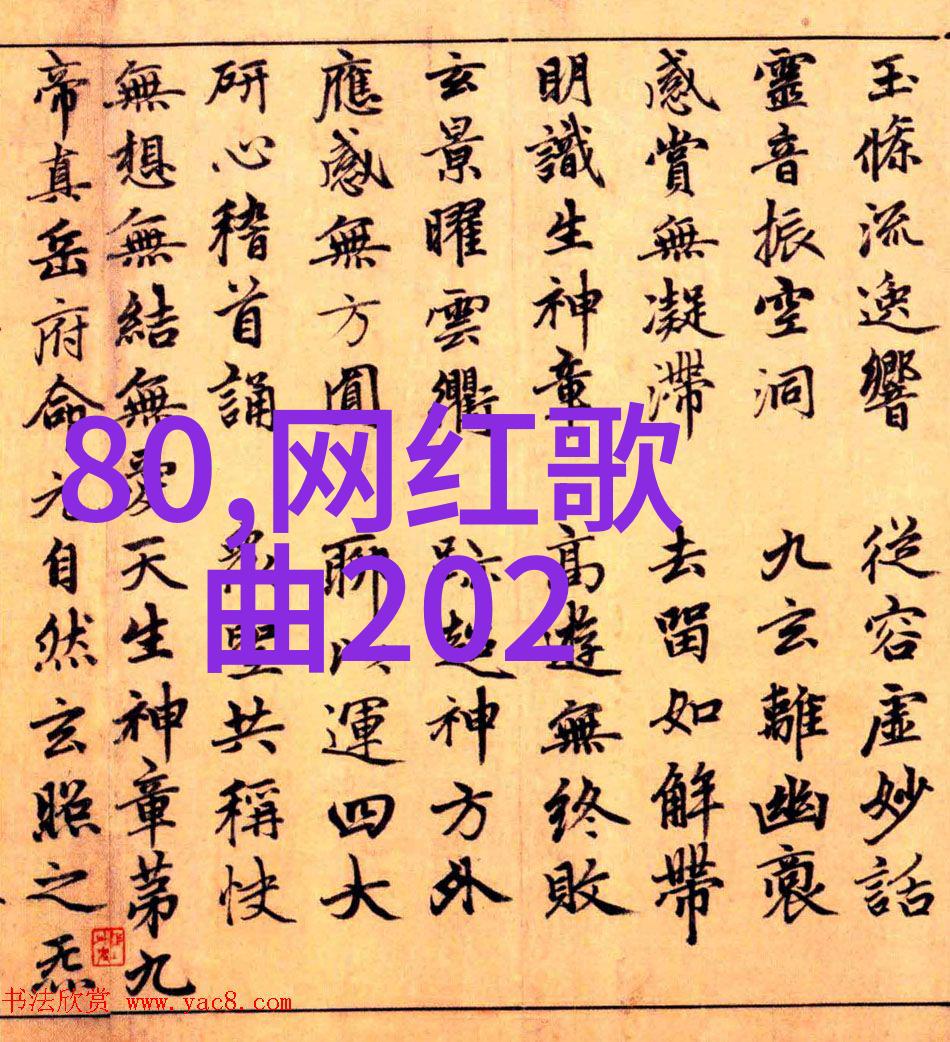 玉條流逸響 從容虛妙話
靈音振空洞 九玄離幽
感賞無凝滯 去留如解帶
明識生神章 高遊無終敗
玄景曜雲衢 跡超神方外
應感無方圓 聊 運四大
研心稽首誦 聖共稱快
無想無結無愛天生神章第九
帝真岳府命元自然玄照之炁
80,网红歌
曲202
书法欣赏 www.yac8.com